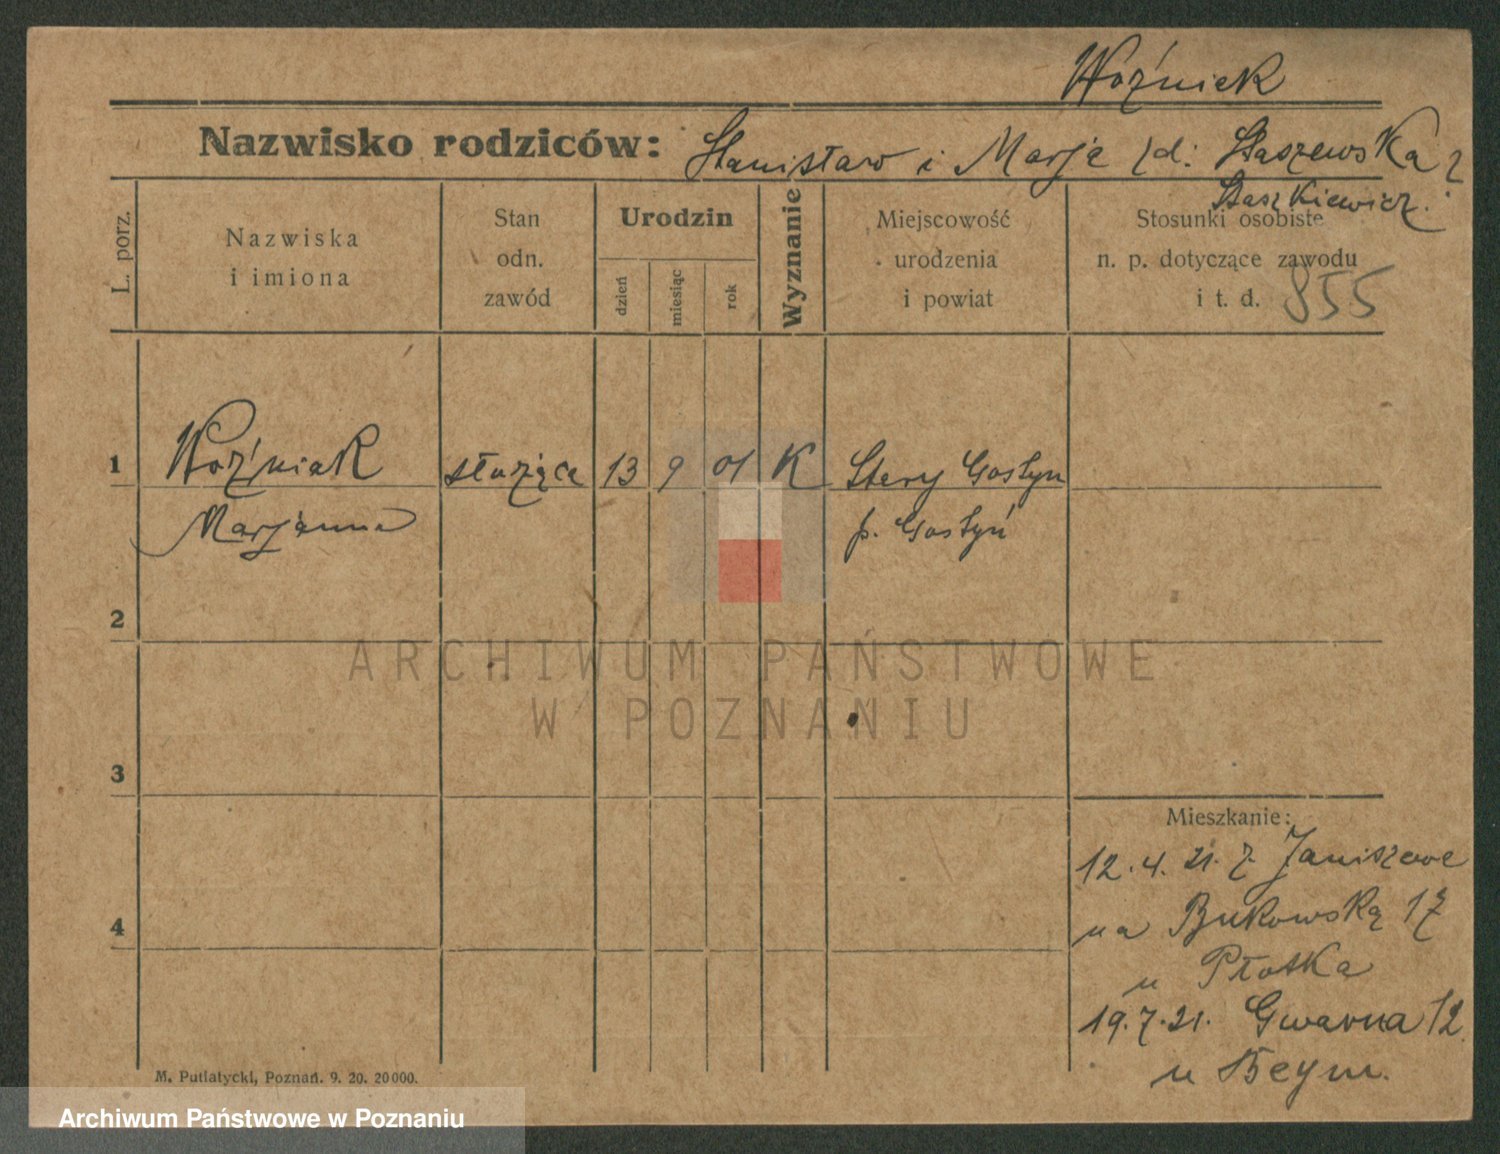 Woźniak
Nazwisko rodziców: Stanisław i Marja /d: Staszewska z
Staszkiewicz.
L. porz.
Nazwiska
i imiona
Stan
odn.
zawód
Urodzin
dzień
miesiąc
rok
Wyznanie
Miejscowość
urodzenia
i powiat
Stosunki osobiste
n. p. dotyczące zawodu
i t. d.
855
1 Woźniak służąca 13 9 01 K Stary Gostyń
Marjanna p. Gostyń
2
3
4
Mieszkanie:
12.4.21. z. Janiszewa
na Bukowską 17
u Płotka
19.7.21. Gwarna 12
u Beym.
M. Putiatycki, Poznań. 9. 20. 20000.
ARCHIWUM PAŃSTWOWE
W POZNANIU
Archiwum Państwowe w Poznaniu